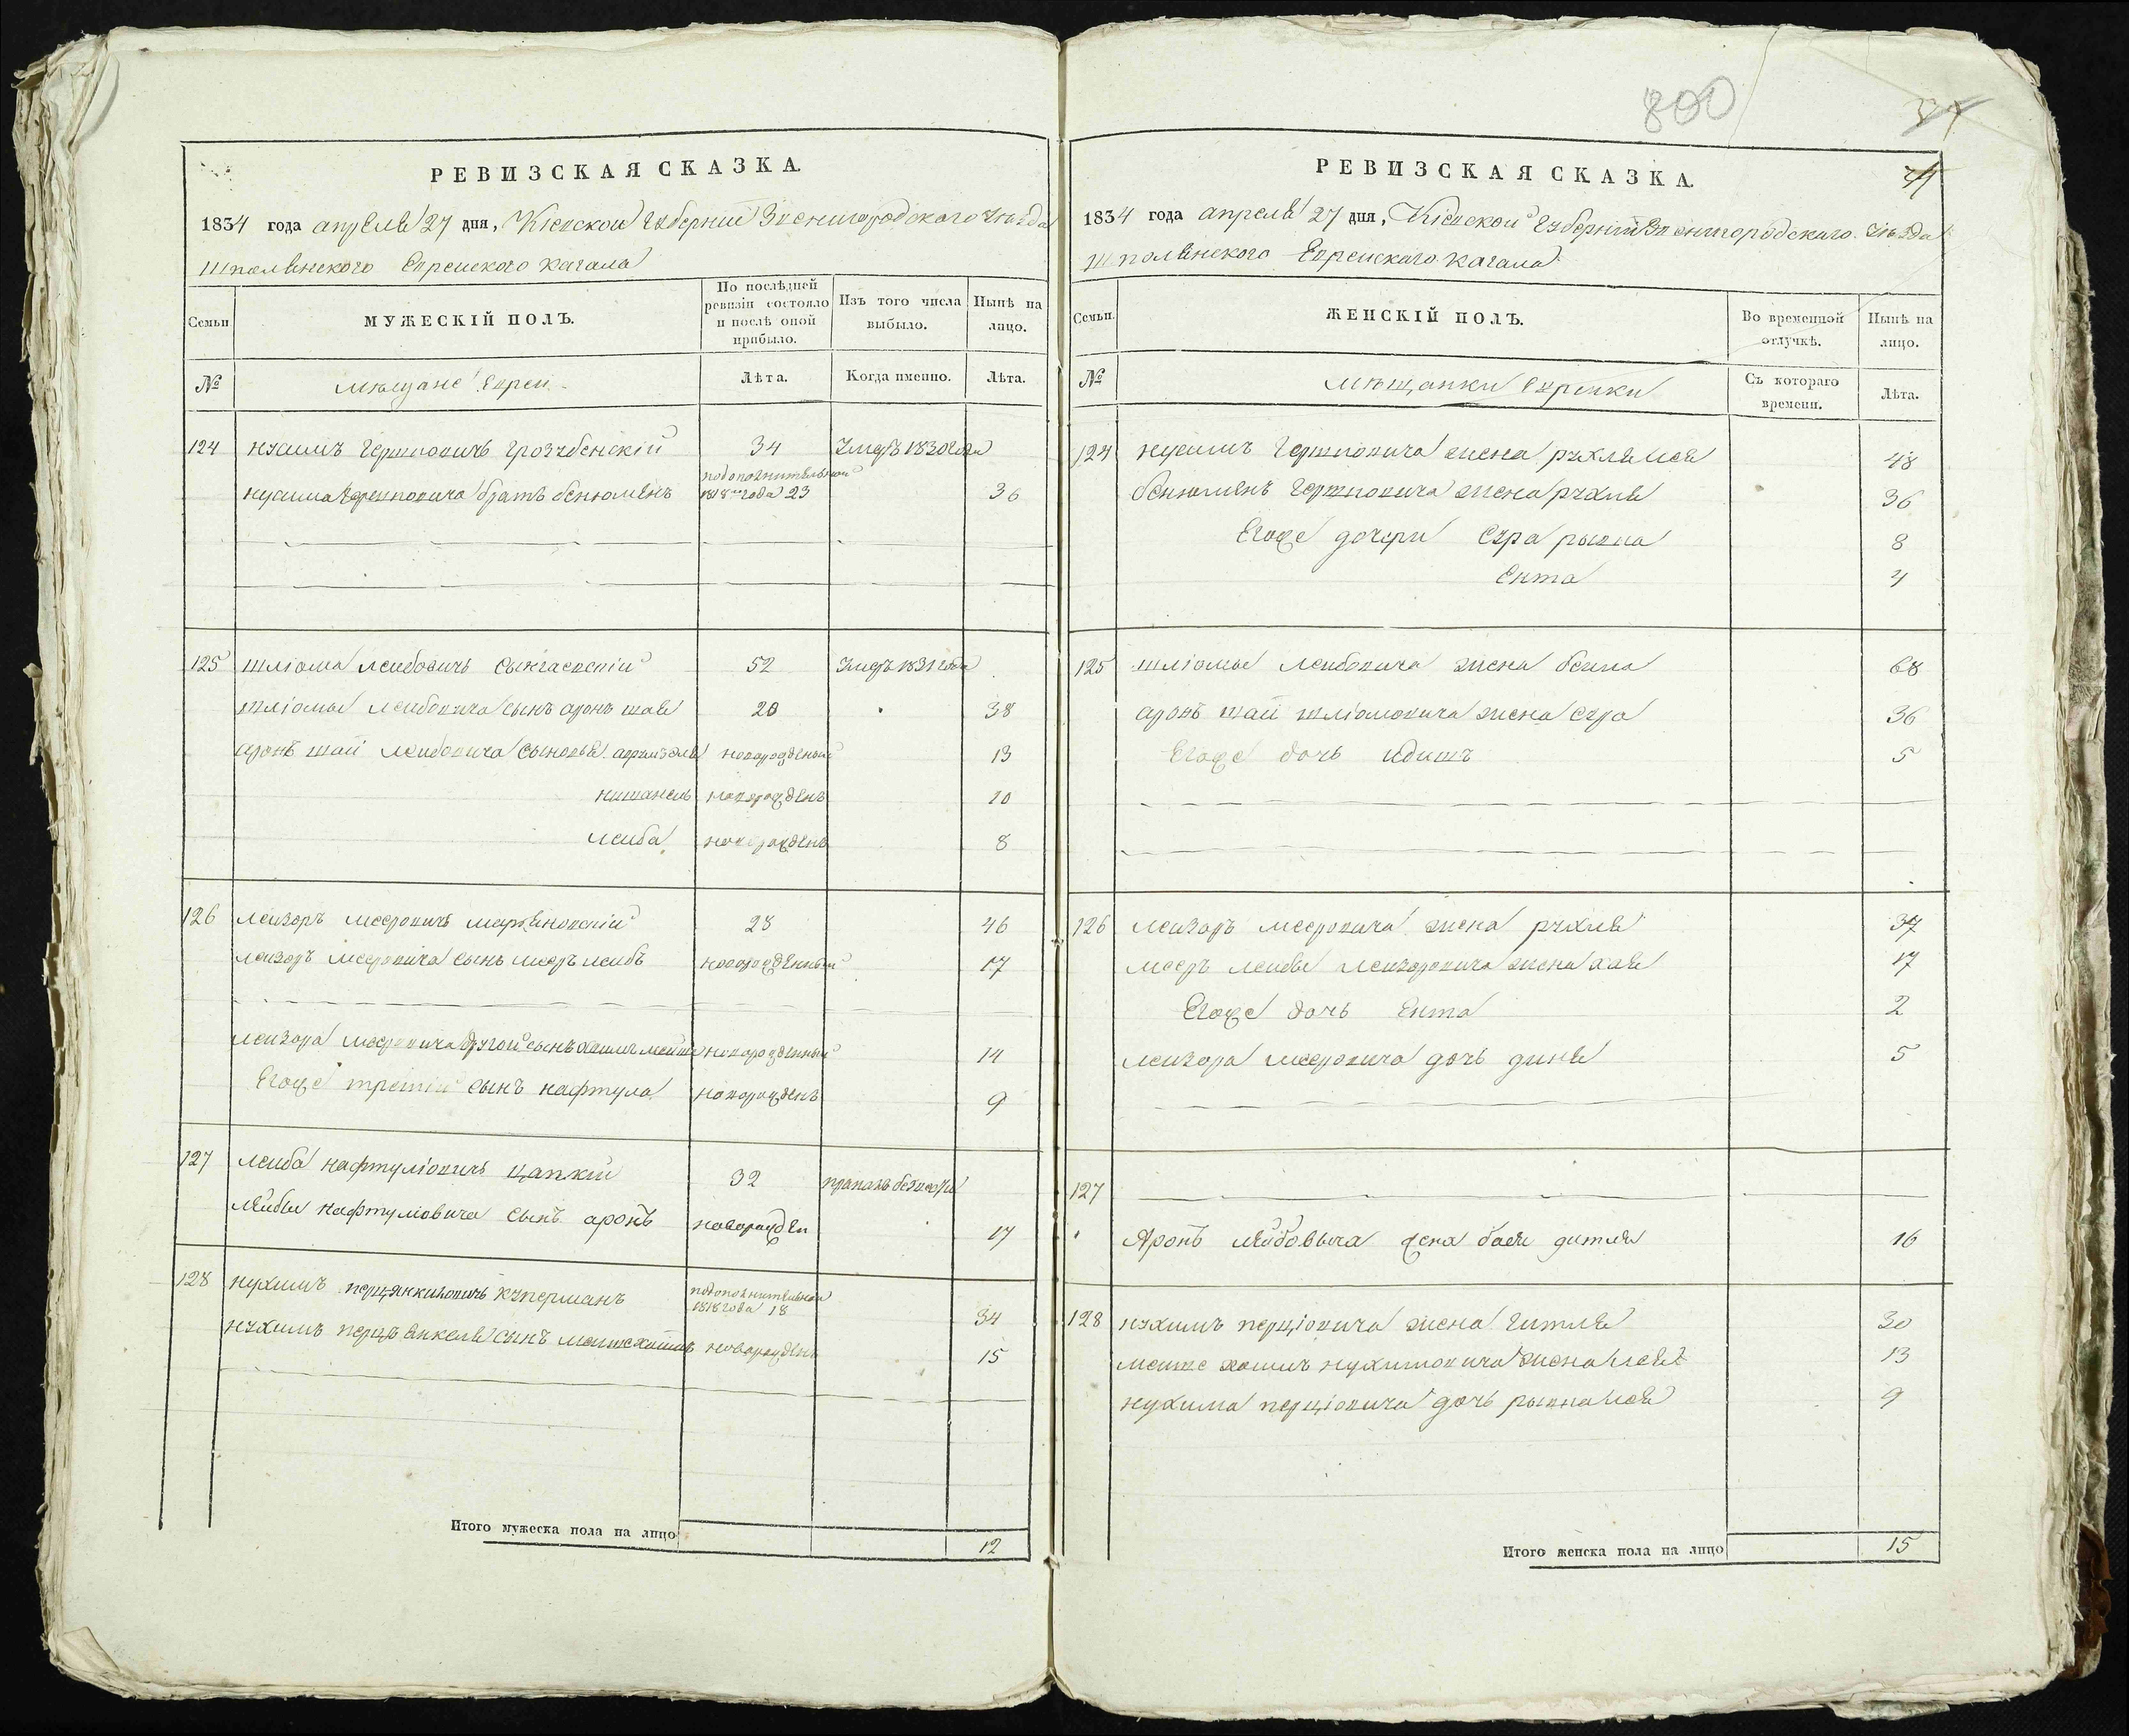 800
РЕВИЗСКАЯ СКАЗКА.
1834 года апреля 27 дня, Кіевской Губерніи Звенигородского уезда
Шполянского Еврейского кагала
Семьи
МУЖЕСКІЙ ПОЛЪ.
По послѣдней ревизіи состояло и послѣ оной прибыло.
Изъ того числа выбыло.
Нынѣ на лицо.
№
мещане Евреи
Лѣта.
Когда именно.
Лѣта.
124 нухимъ Гершковичь 34 Умеръ 1830 года
нухима Гершковича братъ бенюменъ по дополнительной 1818 года 23 36
125 шліома лейбовичь 52 Умеръ 1831 года
шліомы лейбовича сынъ аронъ шая 20 38
аронъ шаи лейбовича сыновья новорожденый 13
новорожденъ 10
лейба новорожденъ 8
126 лейзоръ мееровичь 28 46
лейзоръ мееровича сынъ мееръ лейбъ новорожденный 17
лейзора мееровича другой сынъ новорожденный 14
Егоже третій сынъ нафтула новорожденъ 9
127 лейба нафтуліовичь цапкій 32 пропалъ
лейбы нафтуліовича сынъ аронъ новорожден 17
128 нухимъ куперманъ по дополнительной 1818 года 18 34
нухимъ перцъ янкеля сынъ новорожденъ 15
Итого мужеска пола на лицо 12
РЕВИЗСКАЯ СКАЗКА.
1834 года апреля 27 дня, Кіевской Губерніи Звенигородского уезда
Шполянского Еврейского кагала
Семьи.
ЖЕНСКІЙ ПОЛЪ.
Во временной отлучкѣ.
Нынѣ на лицо.
№
мещанки Еврейки
Съ котораго времени.
Лѣта.
124 нухимъ Гершковича жена рухля лея 48
бенюменъ Гершковича жена рухля 36
Егоже дочери сура рывка 8
Ента 4
125 шліомы лейбовича жена бейла 68
аронъ шаи шліомовича жена сура 36
Егоже дочь идитъ 5
126 лейзоръ мееровича жена рухля 37
мееръ лейбы лейзоровича жена хая 17
Егоже дочь Ента 2
лейзора мееровича дочь диня 5
127
Аронъ лейбовыча жена бася дитля 16
128 нухимъ перціовича жена Гитля 30
мошко хаимъ нухимовича жена лея 13
нухима перціовича дочь рывка лея 9
Итого женска пола на лицо 15